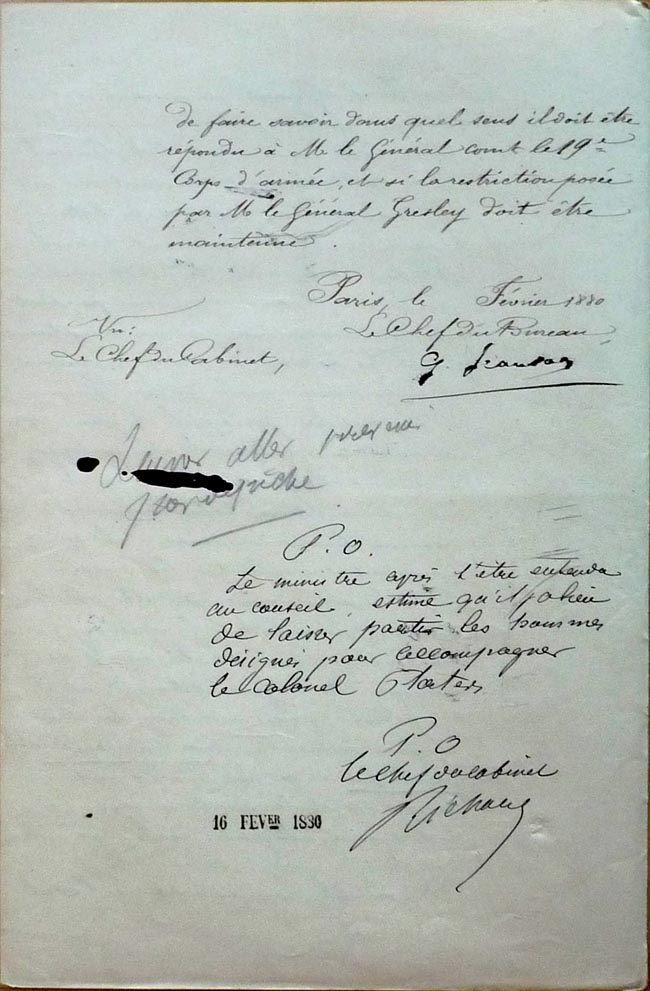 de faire savoir dans quel sens il doit être
répondu à M le Général comt le 19e
Corps d'armée, et si la restriction posée
par M le Général Gresley doit être
maintenue.
Paris, le Février 1880
Vu:
Le Chef du Bureau,
Le Chef du Cabinet,
G.
Laisser aller
par dépêche
P.O.
Le ministre après s'être entendu
au conseil, estime qu'il y a lieu
de laisser partir les hommes
désignés pour accompagner
le Colonel Flatters
P.O
le chef du cabinet
16 FEVER 1880